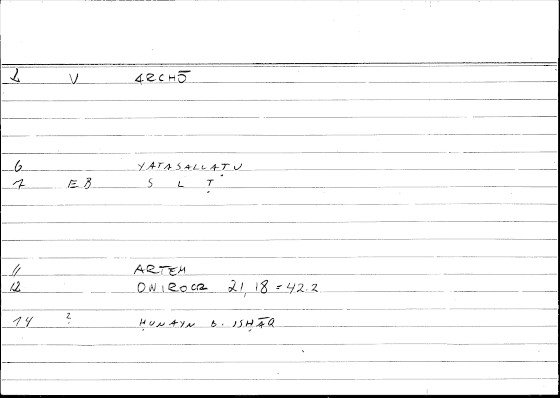 1 V ARCHŌ
6 YATASALLAṬU
7 EB S L Ṭ
11 ARTEM
12 ONIROCR 21,18=42.2
14 ? ḤUNAYN B. ISḤĀQ